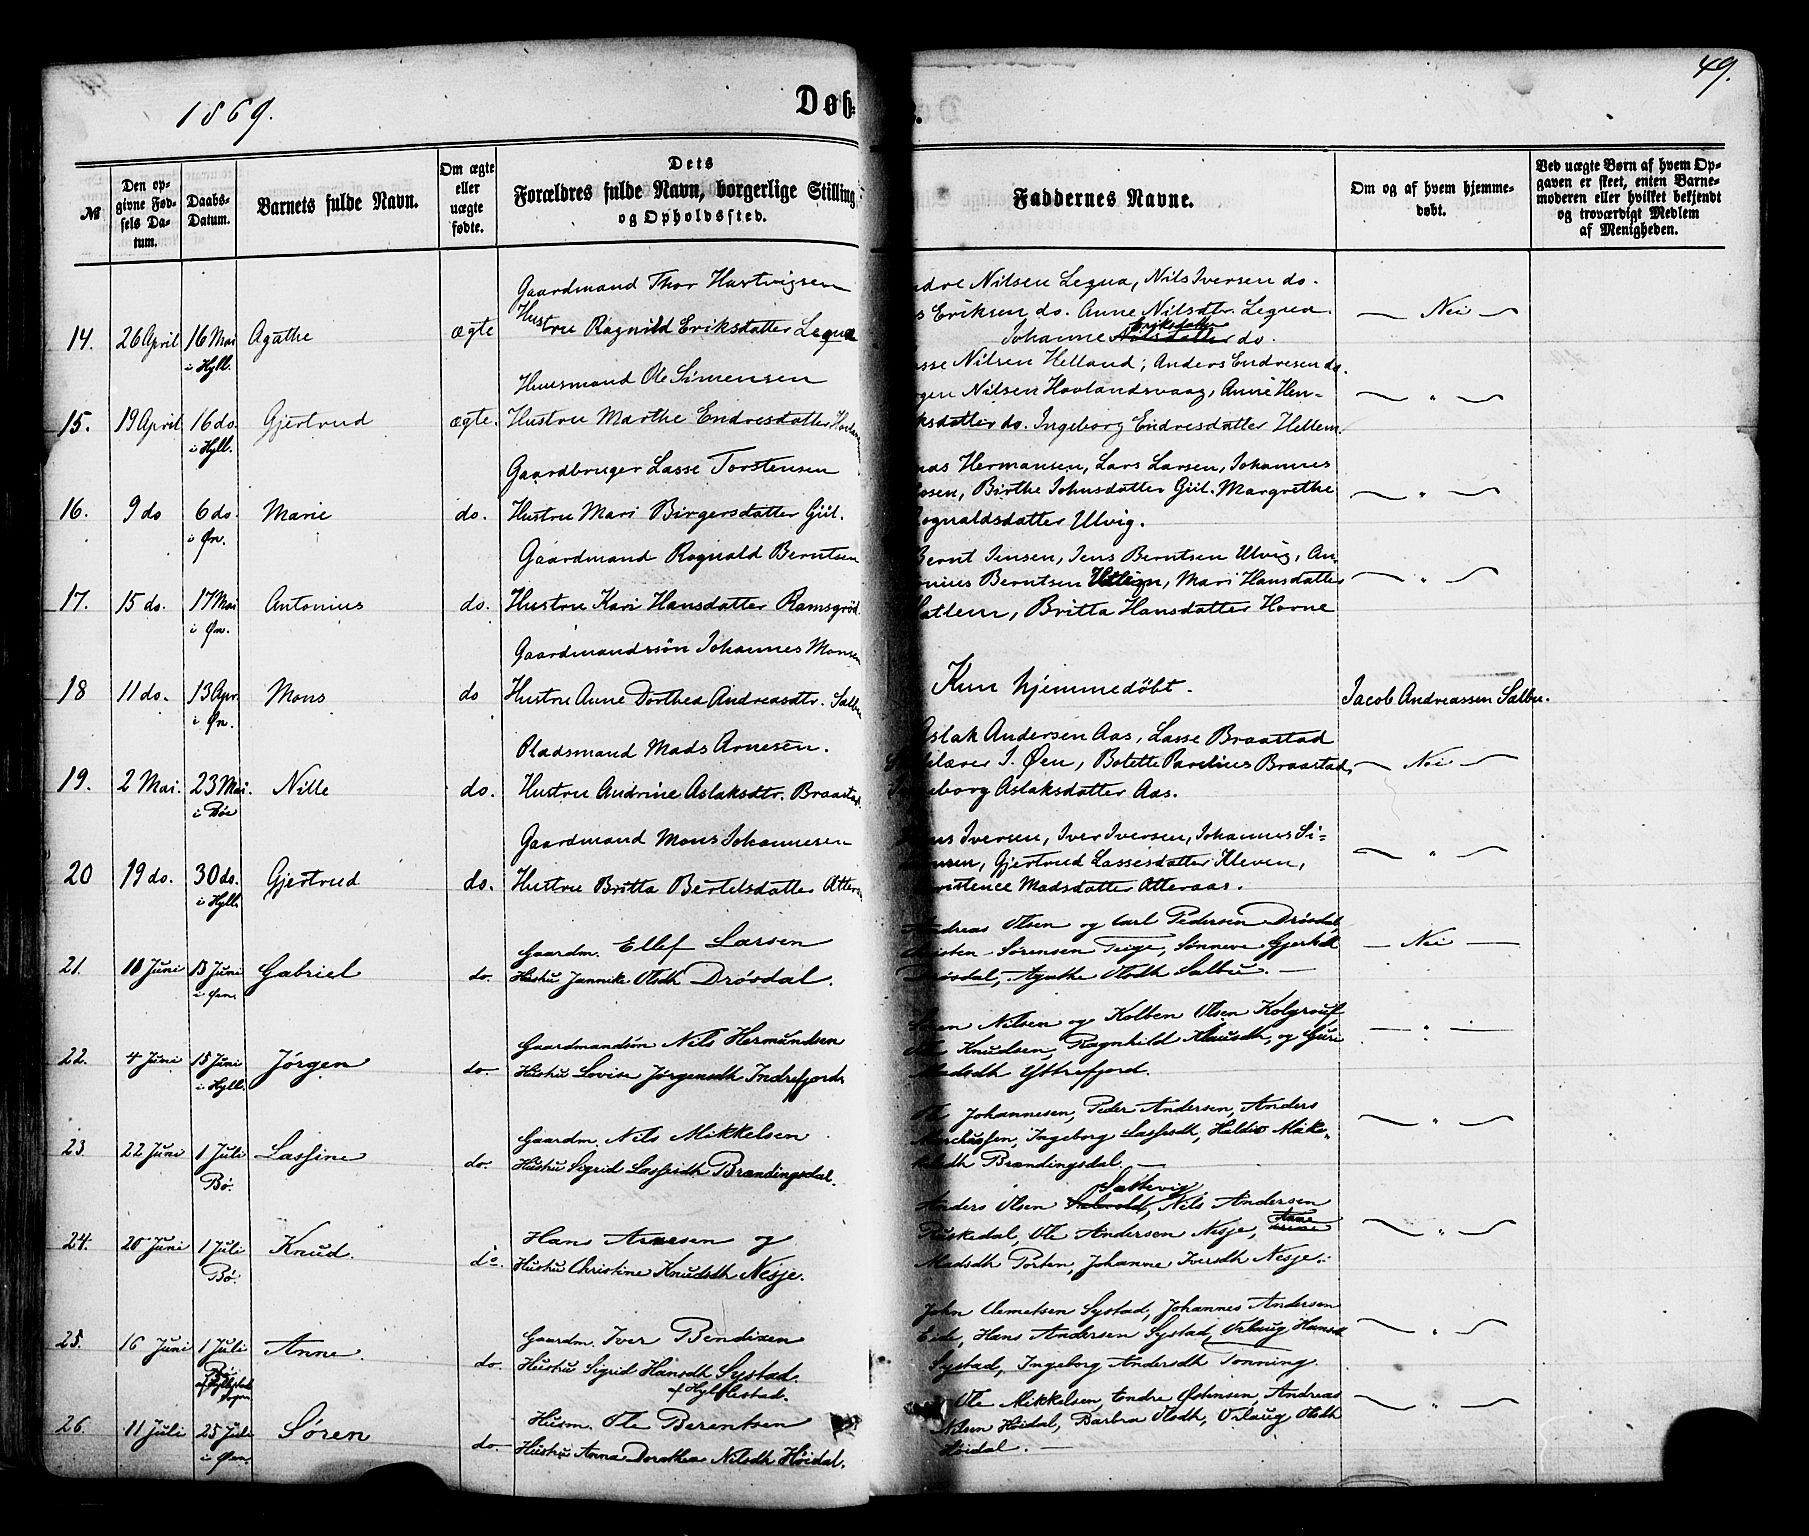 1869.
Døb-
49.
№
Den op-
givne Fød-
sels Da-
tum.
Daabs-
Datum.
Barnets fulde Navn.
Om ægte
eller
uægte
fødte.
Dets
Forældres fulde Navn, borgerlige Stilling
og Opholdssted.
Faddernes Navne.
Om og af hvem hjemme-
døbt.
Ved uægte Børn af hvem Op-
gaven er skeet, enten Barne-
moderen eller hvilket bekjendt
og troværdigt Medlem
af Menigheden.
14. 26 April 16 Mai i Hyll. Agathe ægte
Gaardmand Thor Hartvigsen
Hustru Ragnild Eriksdatter Legua
Nilsen Legua, Nils Iversen do.
Eriksen do. Anne Nilsdtr. Legua
Johanne Eriksdatter do.
Nei
15. 19 April 16 do. i Hyll. Gjertrud ægte.
Huusmand Ole Simensen
Hustru Marthe Endresdatter
Nilsen Helland; Anders Endresen do.
Nilsen Hovlandsvaag, Anne Hen-
do. Ingeborg Endresdatter Hellem.
"
16. 9 do 6 do. i Øn. Marie do.
Gaardbruger Lasse Torstensen
Hustru Mari Birgersdatter Giil.
Hermansen, Lars Larsen, Johannes
Birthe Johnsdatter Giil. Margrethe
Rognaldsdatter Ulvig.
"
17. 15 do. 17 Mai i Øn. Antonius do.
Gaardmand Rognald Berntsen
Hustru Kari Hansdatter Ramsgröd
Bernt Jensen, Jens Berntsen Ulvig, An-
Berntsen Mari Hansdatter
Britta Hansdatter Hovne
"
18 11 do. 13 Apr. i Øn. Mons do
Gaardmandssön Johannes Monsen
Hustru Anne Dorthea Andreasdtr. Salbu
Kun hjemmedøbt.
Jacob Andreassen Salbu.
19. 2 Mai. 23 Mai. i Bøe Nille do.
Pladsmand Mads Arnesen.
Hustru Andrine Aslaksdtr. Braastad.
Aslak Andersen Aas, Lasse Braastad
J. Øen, Bolette Parelius Braastad,
Ingeborg Aslaksdatter Aas.
Nei
20 19 do. 30 do. i Hyll. Gjertrud do.
Gaardmand Mons Johannesen
Hustru Britta Bertelsdatter
Iversen, Iver Iversen, Johannes Si-
Gjertrud Lassesdatter Kleven,
Madsdatter Atteraas.
"
21. Juni 13 Juni i Øen. Gabriel do.
Gaardm. Ellef Larsen
Hustru Jannike Olsdtr Drösdal.
Andreas Olsen og Carl Pedersen Drösdal,
Sørensen Teige, Sønneve
Drösdal, Agathe Olsdtr Salbu.
Nei
22. 4 Juni 15 Juni i Hyll. Jørgen do.
Gaardmandsön Nils Hermundsen
Hustru Lovise Jørgensdtr Indrefjord
Nilsen og Kolben Olsen
Ole Knudsen, Ragnhild og Guri
Madsdtr Yttrefjord.
"
23. 22 Juni 1 Juli Bø. Lassine do.
Gaardm. Nils Mikkelsen
Hustru Sigrid Lassesdtr Brændingsdal.
Ole Johannesen, Peder Andersen, Anders
Ingeborg Lassesdtr,
Brændingsdal.
"
24. 20 Juni 1 Juli Bø. Knud. do
Hans Arnesen og
Hustru Christine Knudsdtr Nesje.
Sættevig
Anders Olsen Nils Andersen
Ole Andersen Nesje, Anne
Madsdtr Porten, Johanne Iversdtr Nesje.
"
25. 16 Juni 1 Juli Bø Anne. do.
Gaardm. Iver Bendixen
Hustru Sigrid Hansdtr Systad.
af Hyllestad.
John Clemetsen Systad, Johannes Andersen
Eide, Hans Andersen Systad, Orlaug
Systad, Ingeborg Andersdtr Tonning.
"
26. 11 Juli 25 Juli i Øen. Søren do.
Husm. Ole Berentsen
Hustru Anna Dorothea Nilsdtr Höidal.
Ole Mikkelsen, Endre Østensen, Andreas
Nilsen Höidal, Barbra Olsdtr, Orlaug Olsdtr
Höidal.
"